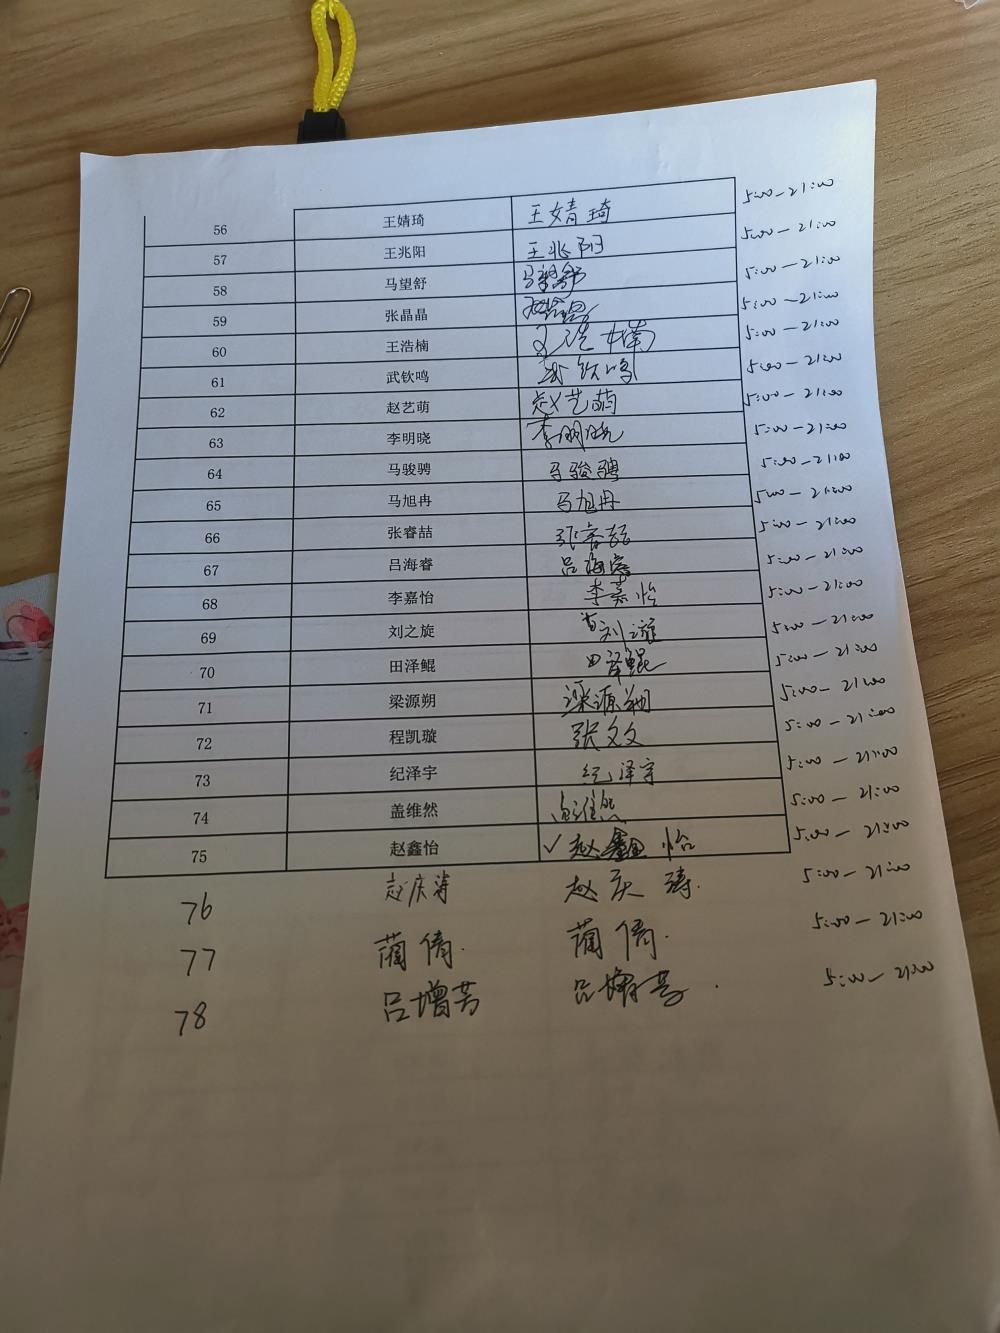 56 王婧琦 王婧琦 5:00-21:00
57 王兆阳 王兆阳 5:00-21:00
58 马望舒 马望舒 5:00-21:00
59 张晶晶 5:00-21:00
60 王浩楠 王浩楠 5:00-21:00
61 武钦鸣 武钦鸣 5:00-21:00
62 赵艺萌 赵艺萌 5:00-21:00
63 李明晓 李明晓 5:00-21:00
64 马骏骋 马骏骋 5:00-21:00
65 马旭冉 马旭冉 5:00-21:00
66 张睿喆 张睿喆 5:00-21:00
67 吕海睿 吕海睿 5:00-21:00
68 李嘉怡 李嘉怡 5:00-21:00
69 刘之旋 5:00-21:00
70 田泽鲲 田泽鲲 5:00-21:00
71 梁源朔 梁源朔 5:00-21:00
72 程凯璇 张文文 5:00-21:00
73 纪泽宇 纪泽宇 5:00-21:00
74 盖维然 盖维然 5:00-21:00
75 赵鑫怡 ✓赵鑫怡 5:00-21:00
76 赵庆涛 赵庆涛. 5:00-21:00
77 蔺倩. 蔺倩. 5:00-21:00
78 吕增芳 吕增芳. 5:00-21:00